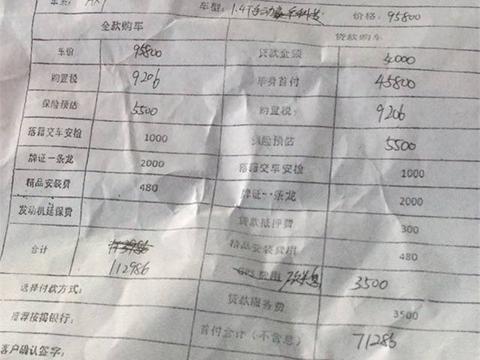 车型: 1.4T自动 价格: 95800
全款购车 贷款购车
车价 95800 贷款金额
购置税 9206 单身首付 45800
保险预估 5500 购置税: 9206
落籍交车安检 1000 保险预估 5500
牌证一条龙 2000 落籍交车安检 1000
精品安装费 480 牌证一条龙 2000
发动机延保费 贷款抵押费 300
合计 113986 精品安装费用 480
112986 GPS费用 3500
选择付款方式: 贷款服务费 3500
推荐按揭银行: 首付合计（不含息） 71286
客户确认签字: